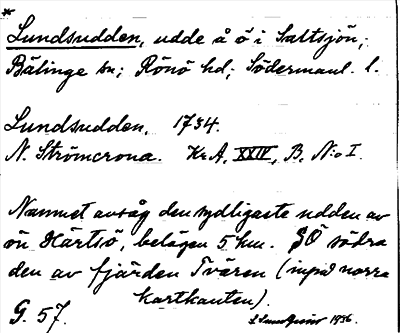 *
Lundsudden, udde å ö i Saltsjön;
Bälinge sn; Rönö hd; Södermanl. l.
Lundsudden, 1734.
N. Strömcrona. Kr. A, XXIV, B, N:o I.
Namnet avsåg den sydligaste udden av
ön Hartsö, belägen 5 km. SÖ södra
den av fjärden Tvären (invid norra
kartkanten).
G. 57. 1936.